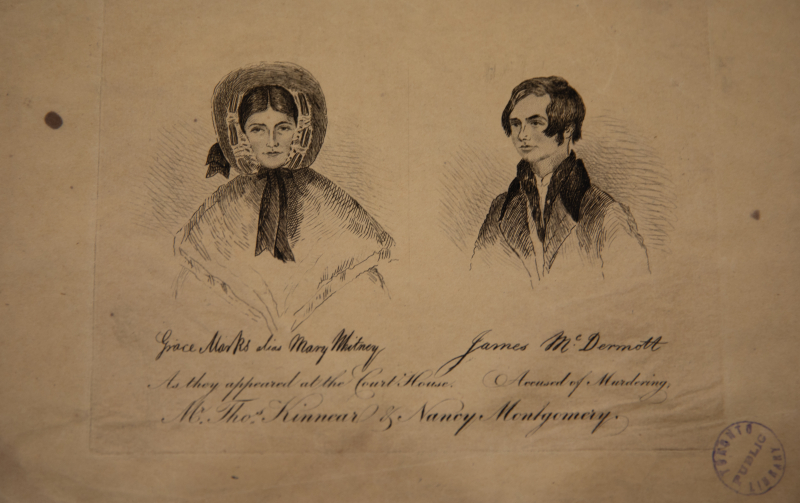 Grace Marks alias Mary Whitney
James Mc. Dermott
As they appeared at the Court House. Accused of Murdering,
Mr. Thos. Kinnear & Nancy Montgomery.
TORONTO PUBLIC LIBRARY